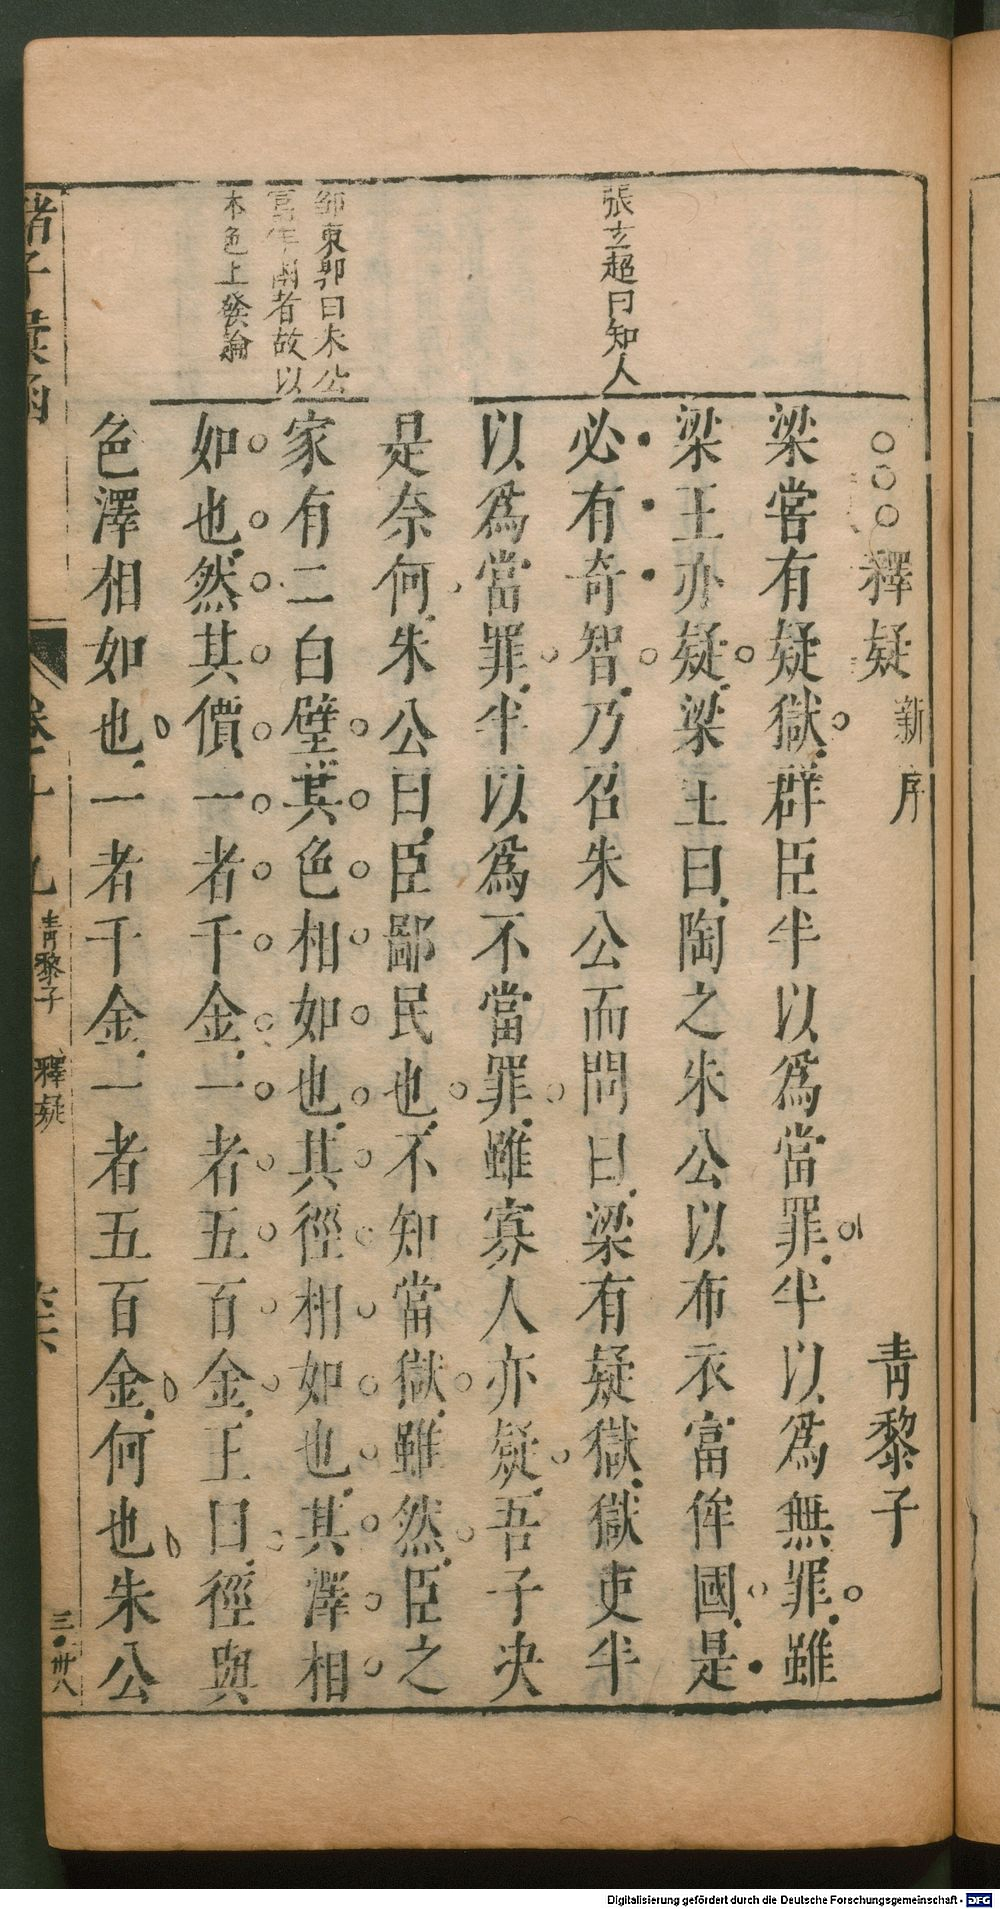 張玄超曰知人
鄒東郭曰朱公
富年國者故以
本色上發論
○○○釋疑 新序 青黎子
梁甞有疑獄群臣半以爲當罪半以爲無罪雖
梁王亦疑梁王曰陶之朱公以布衣富侔國是
必有奇智乃召朱公而問曰梁有疑獄獄吏半
以爲當罪半以爲不當罪雖寡人亦疑吾子决
是奈何朱公曰臣鄙民也不知當獄雖然臣之
家有二白璧其色相如也其徑相如也其澤相
如也然其價一者千金一者五百金王曰徑與
色澤相如也一者千金一者五百金何也朱公
諸子彙函 卷十九 青黎子 釋疑 六 三·卅八
Digitalisierung gefördert durch die Deutsche Forschungsgemeinschaft - DFG